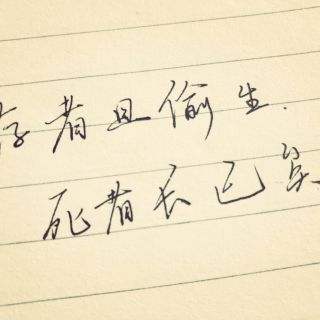 存者且偷生.
死者长已矣